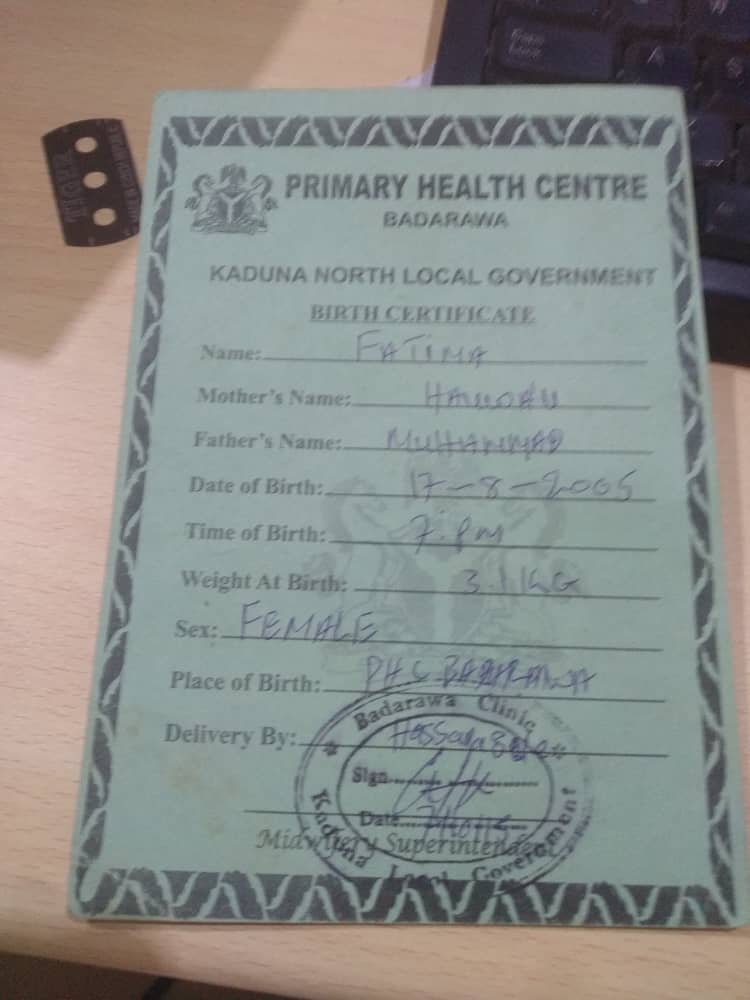 PRIMARY HEALTH CENTRE
BADARAWA
KADUNA NORTH LOCAL GOVERNMENT
BIRTH CERTIFICATE
Name: FATIMA
Mother's Name:
Father's Name: MUHAMMAD
Date of Birth: 17-8-2005
Time of Birth: 7:PM
Weight At Birth: 3.1KG
Sex: FEMALE
Place of Birth: PHC BADARAWA
Badarawa Clinic
Delivery By: Hassana
Sign
Date
Midwifery Superintendent
Kaduna Local Government
TIGER